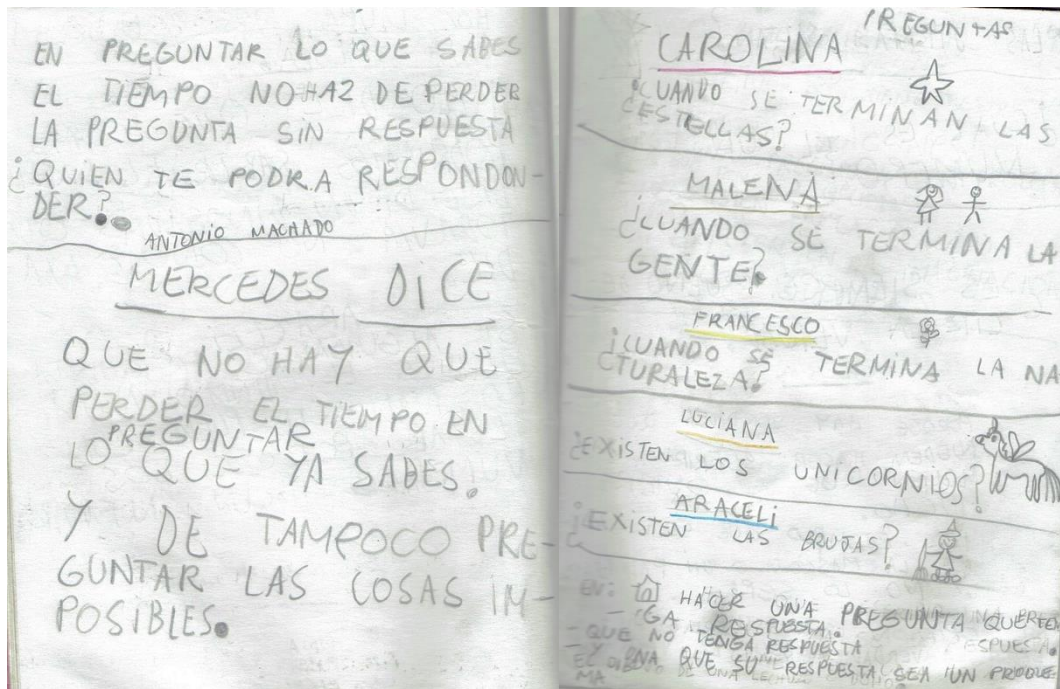 EN PREGUNTAR LO QUE SABES
EL TIEMPO NO HAZ DE PERDER
LA PREGUNTA SIN RESPUESTA
¿QUIEN TE PODRA RESPONDON-
DER?
ANTONIO MACHADO
MERCEDES DICE
QUE NO HAY QUE
PERDER EL TIEMPO EN
PREGUNTAR
LO QUE YA SABES.
Y DE TAMPOCO PRE-
GUNTAR LAS COSAS IM-
POSIBLES.
PREGUNTAS
CAROLINA
¿CUANDO SE TERMINAN LAS
ESTELLAS?
MALENA
¿CUANDO SE TERMINA LA
GENTE?
FRANCESCO
¿CUANDO SE TERMINA LA NA
CTURALEZA?
LUCIANA
¿EXISTEN LOS UNICORNIOS?
ARACELI
¿EXISTEN LAS BRUJAS?
EN: HACER UNA PREGUNTA QUE TEN
GA RESPUESTA.
- QUE NO TENGA RESPUESTA
- Y UNA QUE SU RESPUESTA SEA UN PROBLE
MA